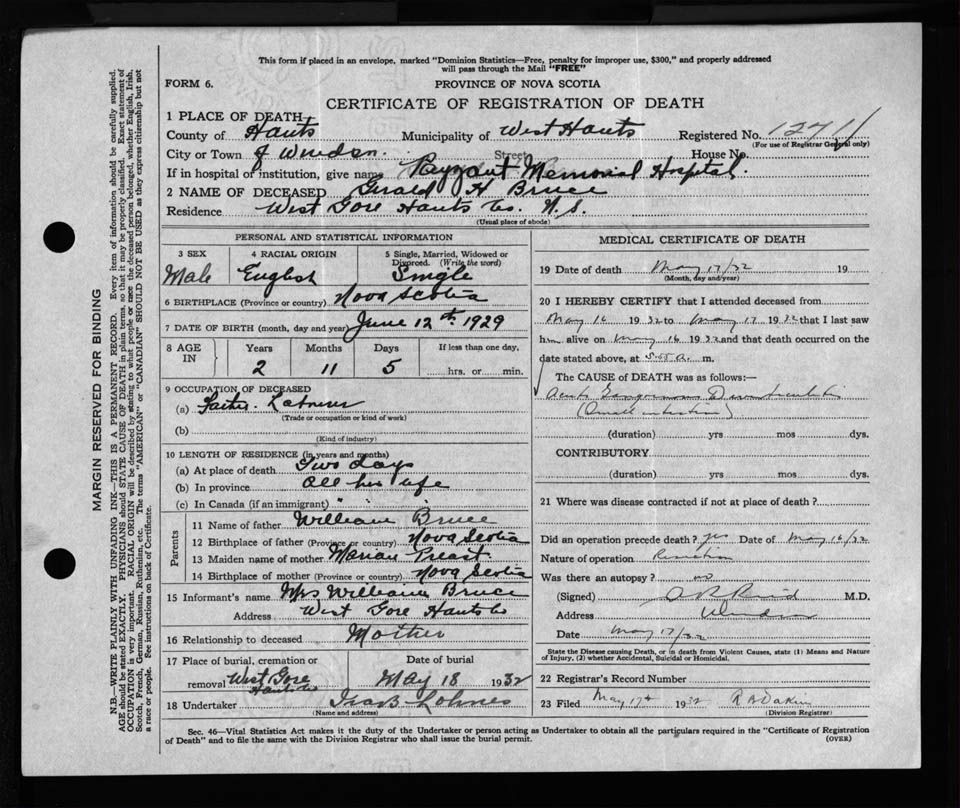 This form if placed in an envelope, marked "Dominion Statistics—Free, penalty for improper use, $300," and properly addressed
will pass through the Mail "FREE"
FORM 6.
PROVINCE OF NOVA SCOTIA
CERTIFICATE OF REGISTRATION OF DEATH
1 PLACE OF DEATH
County of Hants Municipality of West Hants Registered No. 1271
(For use of Registrar General only)
City or Town of Windsor Street House No.
If in hospital of institution, give name Payzant Memorial Hospital.
2 NAME OF DECEASED Gerald H Bruce
Residence West Gore Hants Co. N.S.
(Usual place of abode)
PERSONAL AND STATISTICAL INFORMATION
3 SEX 4 RACIAL ORIGIN 5 Single, Married, Widowed or
Divorced. (Write the word)
Male English Single
6 BIRTHPLACE (Province or country) Nova Scotia
7 DATE OF BIRTH (month, day and year) June 12th 1929
8 AGE IN Years Months Days If less than one day,
2 11 5 hrs. or min.
9 OCCUPATION OF DECEASED
(a) Father. Labourer
(Trade or occupation or kind of work)
(b)
(Kind of industry)
10 LENGTH OF RESIDENCE (in years and months)
(a) At place of death Two days
(b) In province all his life
(c) In Canada (if an immigrant) " "
Parents
11 Name of father William Bruce
12 Birthplace of father (Province or country) Nova Scotia
13 Maiden name of mother Marian Preast
14 Birthplace of mother (Province or country) Nova Scotia
15 Informant's name Mrs William Bruce
Address West Gore Hants Co
16 Relationship to deceased Mother
17 Place of burial, cremation or Date of burial
removal West Gore Hants Co May 18 1932
18 Undertaker Lohnes
(Name and address)
MEDICAL CERTIFICATE OF DEATH
19 Date of death May 17/32 19
(Month, day and year)
20 I HEREBY CERTIFY that I attended deceased from
May 16 1932 to May 17 1932 that I last saw
him alive on May 16 1932 and that death occurred on the
date stated above, at a. m.
The CAUSE of DEATH was as follows:—
Acute Gangrenous
(Small intestine)
(duration) yrs mos dys.
CONTRIBUTORY
(duration) yrs mos dys.
21 Where was disease contracted if not at place of death?
Did an operation precede death? yes Date of May 16/32
Nature of operation
Was there an autopsy? no
(Signed) Reid M.D.
Address Windsor
Date May 17/32
State the Disease causing Death, or in death from Violent Causes, state (1) Means and Nature
of Injury, (2) whether Accidental, Suicidal or Homicidal.
22 Registrar's Record Number
23 Filed May 17th 1932 R A Dakin
(Division Registrar)
Sec. 46—Vital Statistics Act makes it the duty of the Undertaker or person acting as Undertaker to obtain all the particulars required in the "Certificate of Registration
of Death" and to file the same with the Division Registrar who shall issue the burial permit. (OVER)
MARGIN RESERVED FOR BINDING
N.B.—WRITE PLAINLY WITH UNFADING INK—THIS IS A PERMANENT RECORD. Every item of information should be carefully supplied.
AGE should be stated EXACTLY. PHYSICIANS should STATE CAUSE OF DEATH in plain terms, so that it may be properly classified. Exact statement of
OCCUPATION is very important. RACIAL ORIGIN will be described by stating to what people or race the deceased person belonged, whether English, Irish,
Scotch, French, German, Russian, Ruthenian, etc. The terms "AMERICAN" or "CANADIAN" SHOULD NOT BE USED as they express citizenship but not
a race or people. See instructions on back of Certificate.